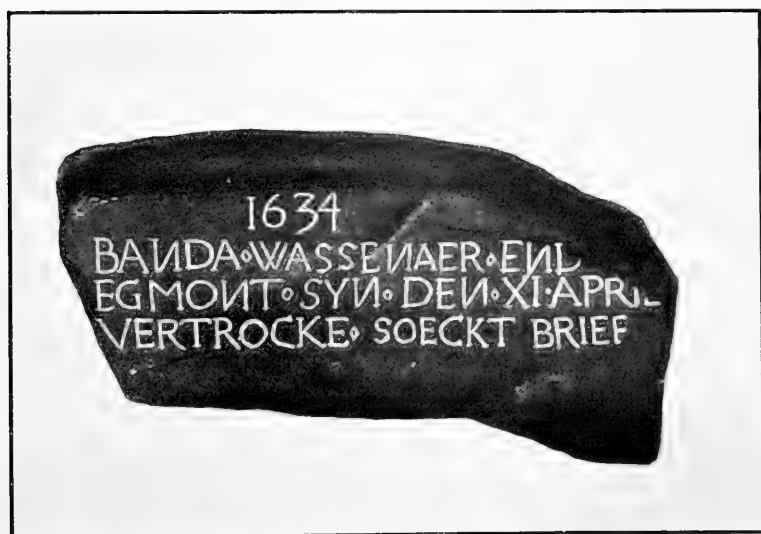 1634
BANDA◦WASSENAER◦END
EGMONT◦SYN◦DEN◦XI·APRIL
VERTROCKE◦ SOECKT BRIEF